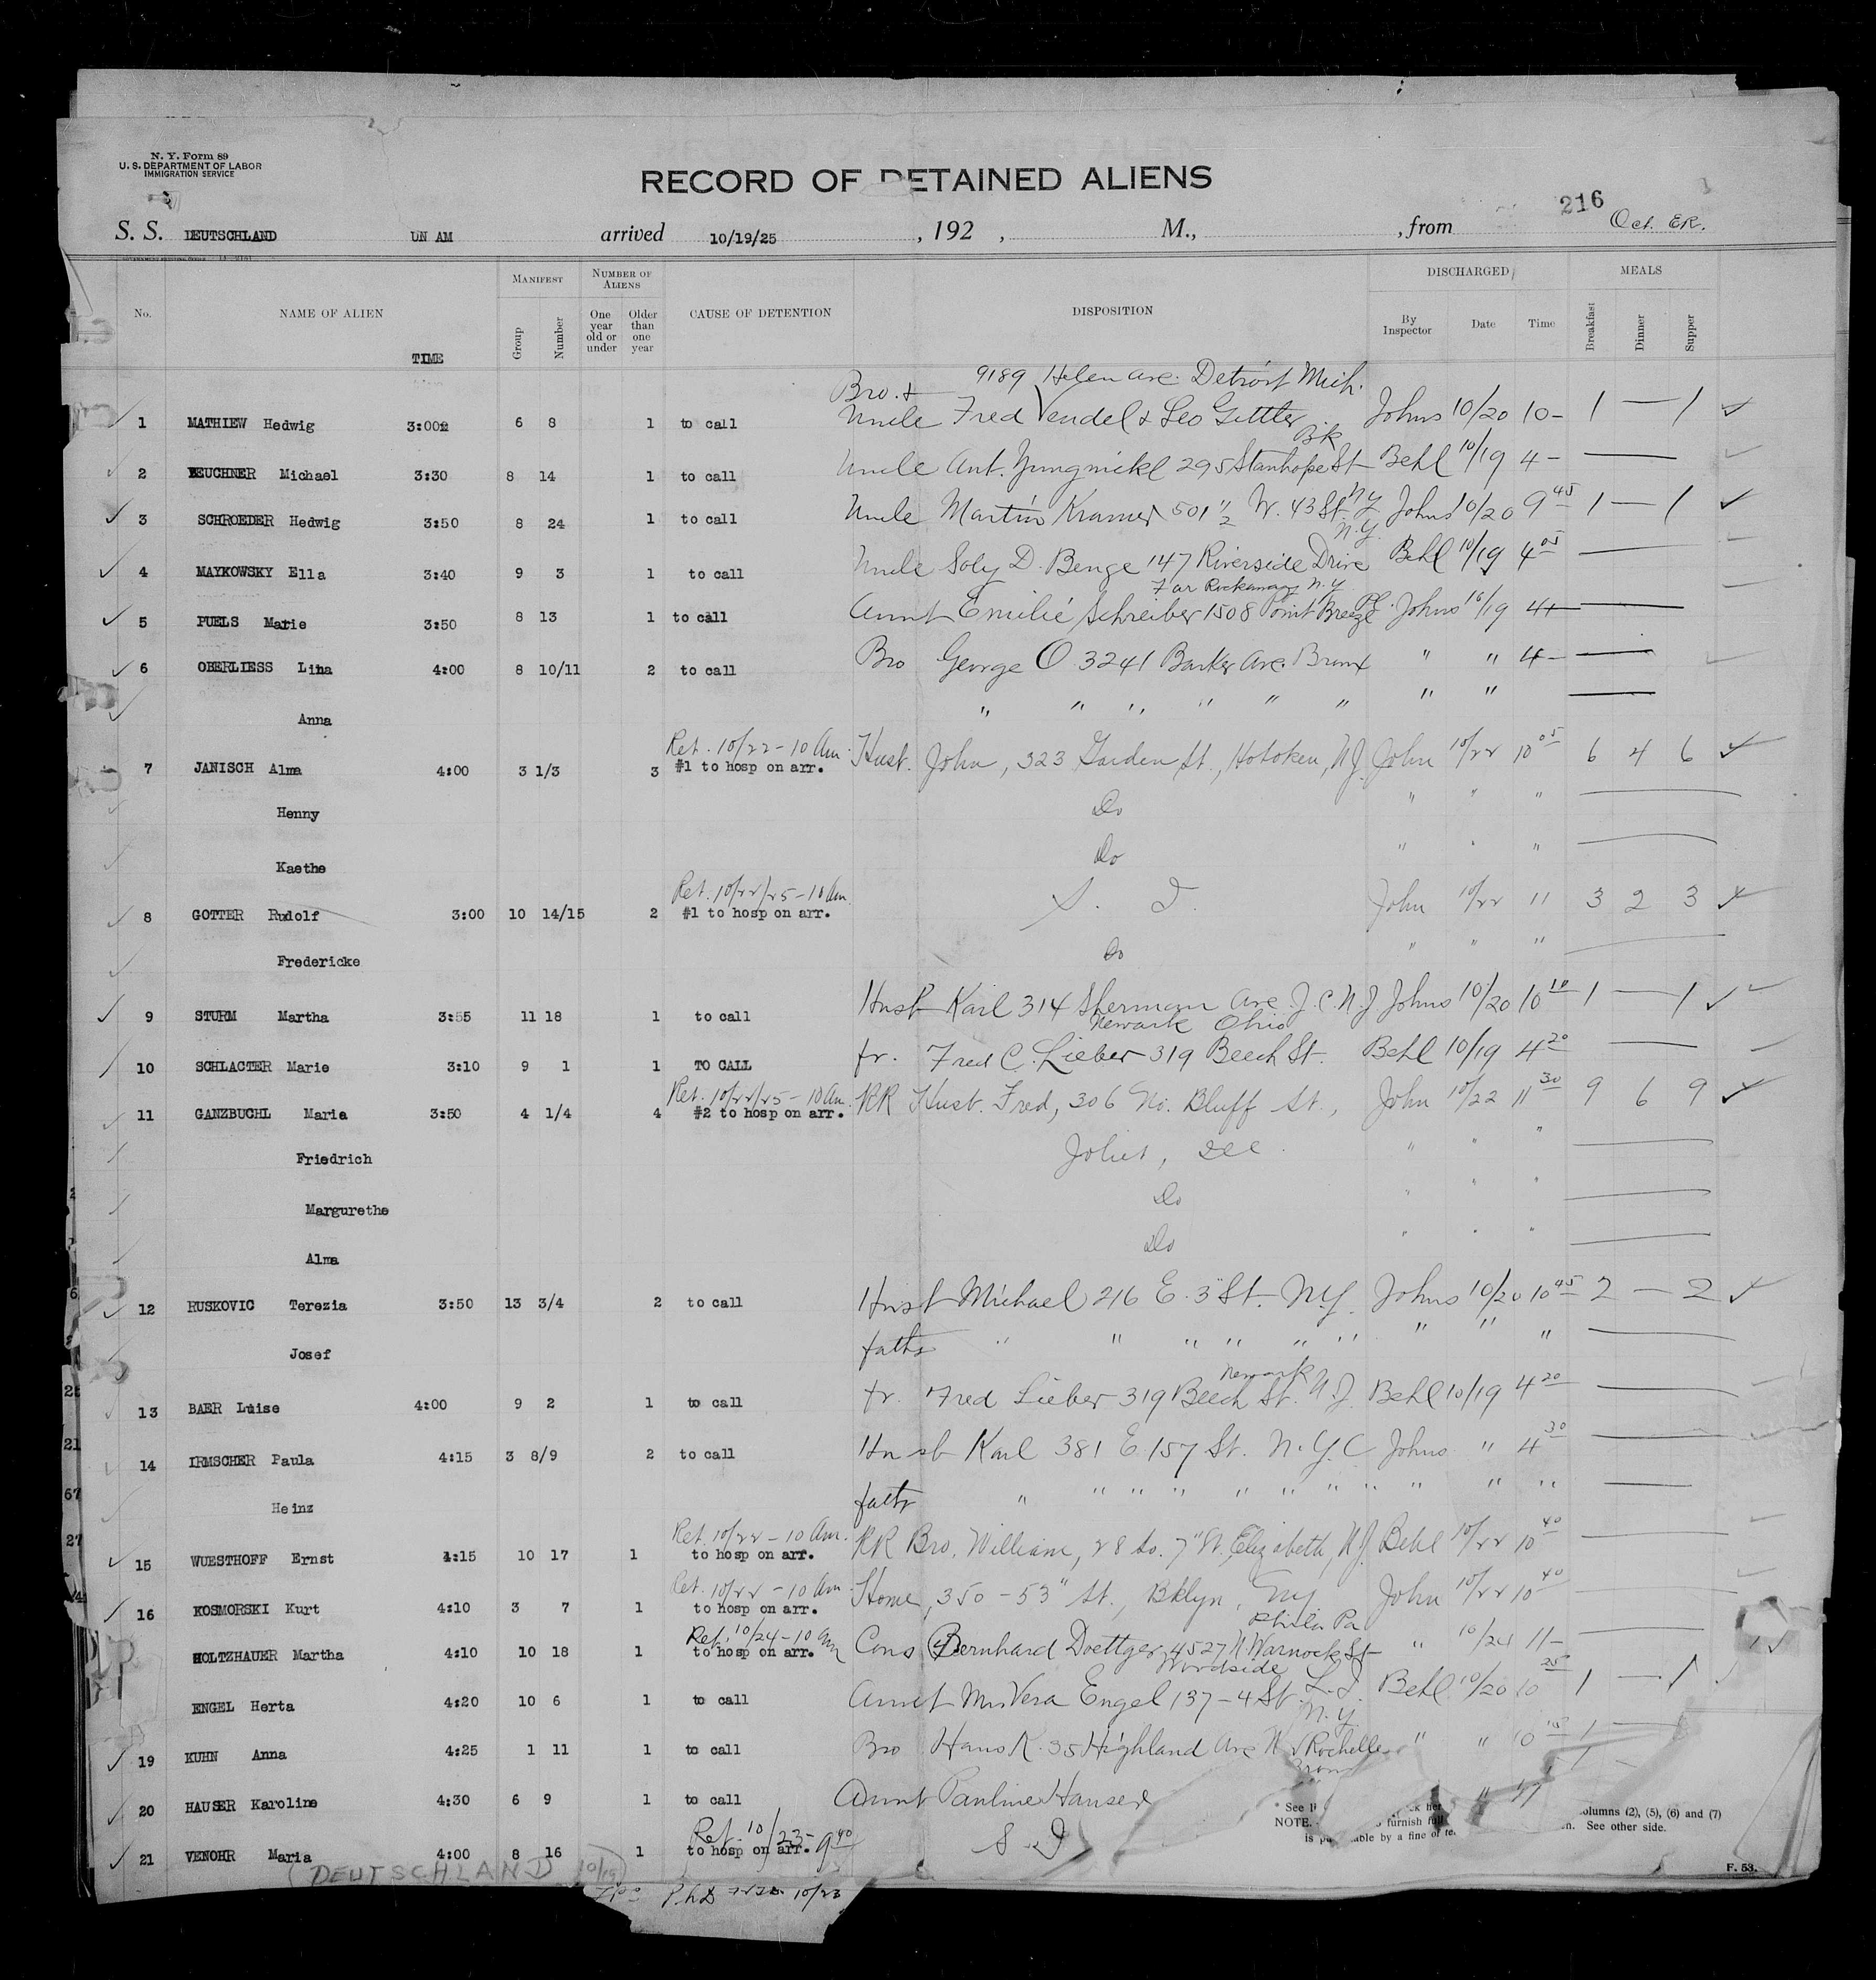 N. Y. Form 89
U. S. DEPARTMENT OF LABOR
IMMIGRATION SERVICE
RECORD OF DETAINED ALIENS
216
Oct. ER.
S. S. DEUTSCHLAND UN AM arrived 10/19/25 , 192 , M., , from
No. NAME OF ALIEN TIME MANIFEST Group Number NUMBER OF ALIENS One year old or under Older than one year CAUSE OF DETENTION DISPOSITION DISCHARGED By Inspector Date Time MEALS Breakfast Dinner Supper
Bro. & 9189 Helen Ave. Detroit Mich.
1 MATHIEW Hedwig 3:00 6 8 1 to call Uncle Fred Vendel & Leo Gittler Johns 10/20 10- 1 — 1
Bk
2 BEUCHNER Michael 3:30 8 14 1 to call Uncle Ant. Jungnickl 295 Stanhope St Behl 10/19 4 -
3 SCHROEDER Hedwig 3:50 8 24 1 to call Uncle Martin Kramer 501 1/2 W. 43 St N.Y. Johns 10/20 9 45 1 — 1
N.Y.
4 MAYKOWSKY Ella 3:40 9 3 1 to call Uncle Soly D. Benge 147 Riverside Drive Behl 10/19 4 05
Far Rockaway N.Y
5 PUELS Marie 3:50 8 13 1 to call Aunt Emilie Schreiber 1508 Point Breeze Pl. Johns 10/19 4-
6 OBERLIESS Lina 4:00 8 10/11 2 to call Bro George O 3241 Barker Ave. Bronx " " 4-
Anna " " " " " " " "
Ret. 10/22 - 10 Am.
7 JANISCH Alma 4:00 3 1/3 3 #1 to hosp on arr. Husb. John, 323 Garden St., Hoboken, N.J. John 10/22 10 05 6 4 6
Henny Do " " "
Kaethe Do " " "
Ret. 10/22/25 - 10 Am.
8 GOTTER Rudolf 3:00 10 14/15 2 #1 to hosp on arr. S. I. John 10/22 11 3 2 3
Fredericke Do " " "
9 STURM Martha 3:55 11 18 1 to call Husb Karl 314 Sherman Ave. J.C. N.J Johns 10/20 10 10 1 — 1
Newark Ohio
10 SCHLACTER Marie 3:10 9 1 1 TO CALL fr. Fred C. Lieber 319 Beech St. Behl 10/19 4 20
Ret. 10/22/25 - 10 Am.
11 GANZBUCHL Maria 3:50 4 1/4 4 #2 to hosp on arr. RR Husb. Fred, 306 No. Bluff St., John 10/22 11 30 9 6 9
Friedrich Joliet, Ill. " " "
Margurethe Do " " "
Alma Do " " "
12 RUSKOVIC Terezia 3:50 13 3/4 2 to call Husb Michael 216 E. 3" St. N.Y. Johns 10/20 10 45 2 — 2
Josef fath " " " " " " " " "
Newark
13 BAER Luise 4:00 9 2 1 to call fr. Fred Lieber 319 Beech St. N.J. Behl 10/19 4 20
14 IRMSCHER Paula 4:15 3 8/9 2 to call Husb Karl 381 E. 157 St. N.Y.C Johns " 4 30
Heinz fath " " " " " " " " " " "
Ret. 10/22 - 10 Am.
15 WUESTHOFF Ernst 4:15 10 17 1 to hosp on arr. RR Bro. William, 28 So. 7" St. Elizabeth, N.J. Behl 10/22 10 40
Ret. 10/22 - 10 Am.
16 KOSMORSKI Kurt 4:10 3 7 1 to hosp on arr. Home, 350 - 53" St., Bklyn, NY John 10/22 10 40
Ret. 10/24 - 10 Am Phila Pa
HOLTZHAUER Martha 4:10 10 18 1 to hosp on arr. Cons Bernhard Doettger 4527 N Warnock St " 10/24 11-
Woodside
ENGEL Herta 4:20 10 6 1 to call Aunt Mrs Vera Engel 137-4 St. L.I. Behl 10/20 10 25 1 — 1
N.Y.
19 KUHN Anna 4:25 1 11 1 to call Bro Hans K. 35 Highland Ave N Rochelle " " 10 1
20 HAUSER Karoline 4:30 6 9 1 to call Aunt Pauline Hauser "
Ret. 10/23- 9 40
21 VENOHR Maria 4:00 8 16 1 to hosp on arr. S. I
* See
NOTE. furnish
is able by a fine of
olumns (2), (5), (6) and (7)
n. See other side.
F. 53.
(DEUTSCHLAND 10/19)
10/23